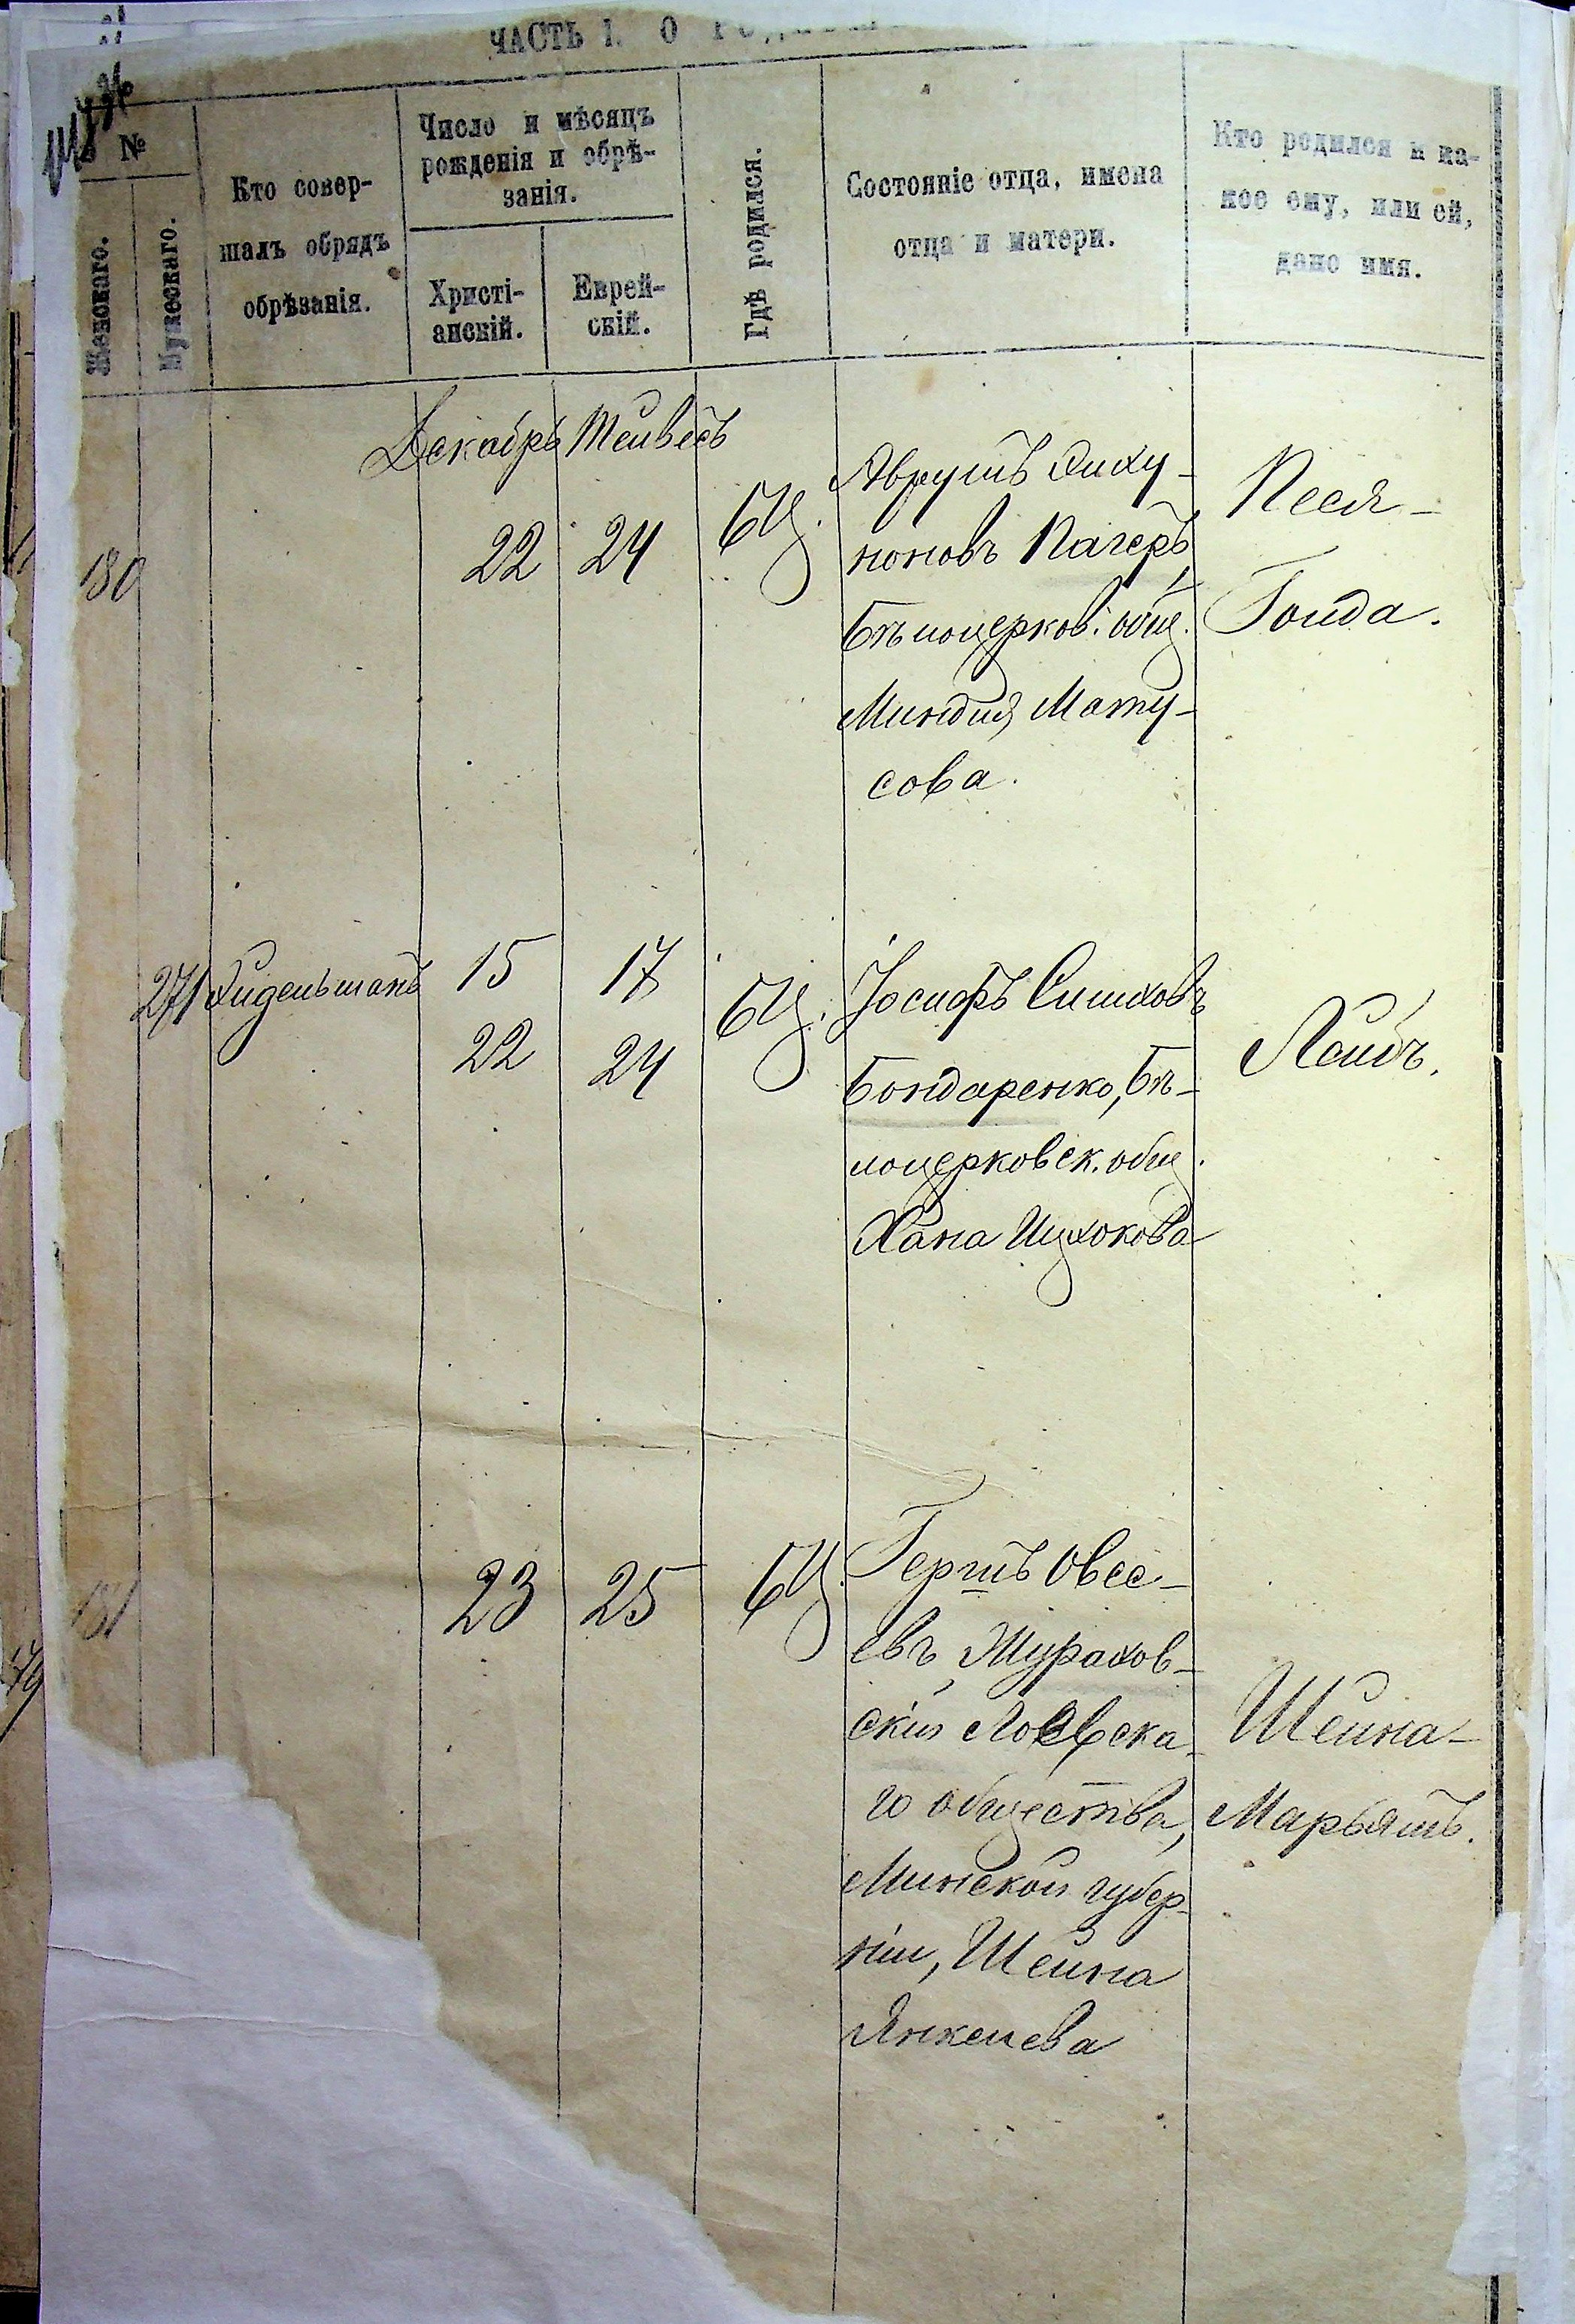 ЧАСТЬ I. О
№
Женскаго.
Мужескаго.
Кто совер-
шалъ обрядъ
обрѣзанія.
Число и мѣсяцъ
рожденія и обрѣ-
занія.
Христі-
анскій.
Еврей-
скій.
Гдѣ родился.
Состояніе отца, имена
отца и матери.
Кто родился и ка-
кое ему, или ей,
дано имя.
Декабрь Тейвесъ
180 22 24 БЦ.
Аврумъ
новъ Пагеръ,
Бѣлоцерков. общ.
Миндля Мату-
сова.
Песя-
Голда.
271 15 17 БЦ.
22 24
Іосифъ Симховъ
Бондаренко, Бѣ-
лоцерковск. общ.
Хана Ицхокова
Лейбъ.
181 23 25 БЦ.
Гершъ Овсе-
евъ Журахов-
скій Лоевска-
го общества,
Минской губер-
ніи, Шейна
Янкелева
Шейна-
Марьямъ.